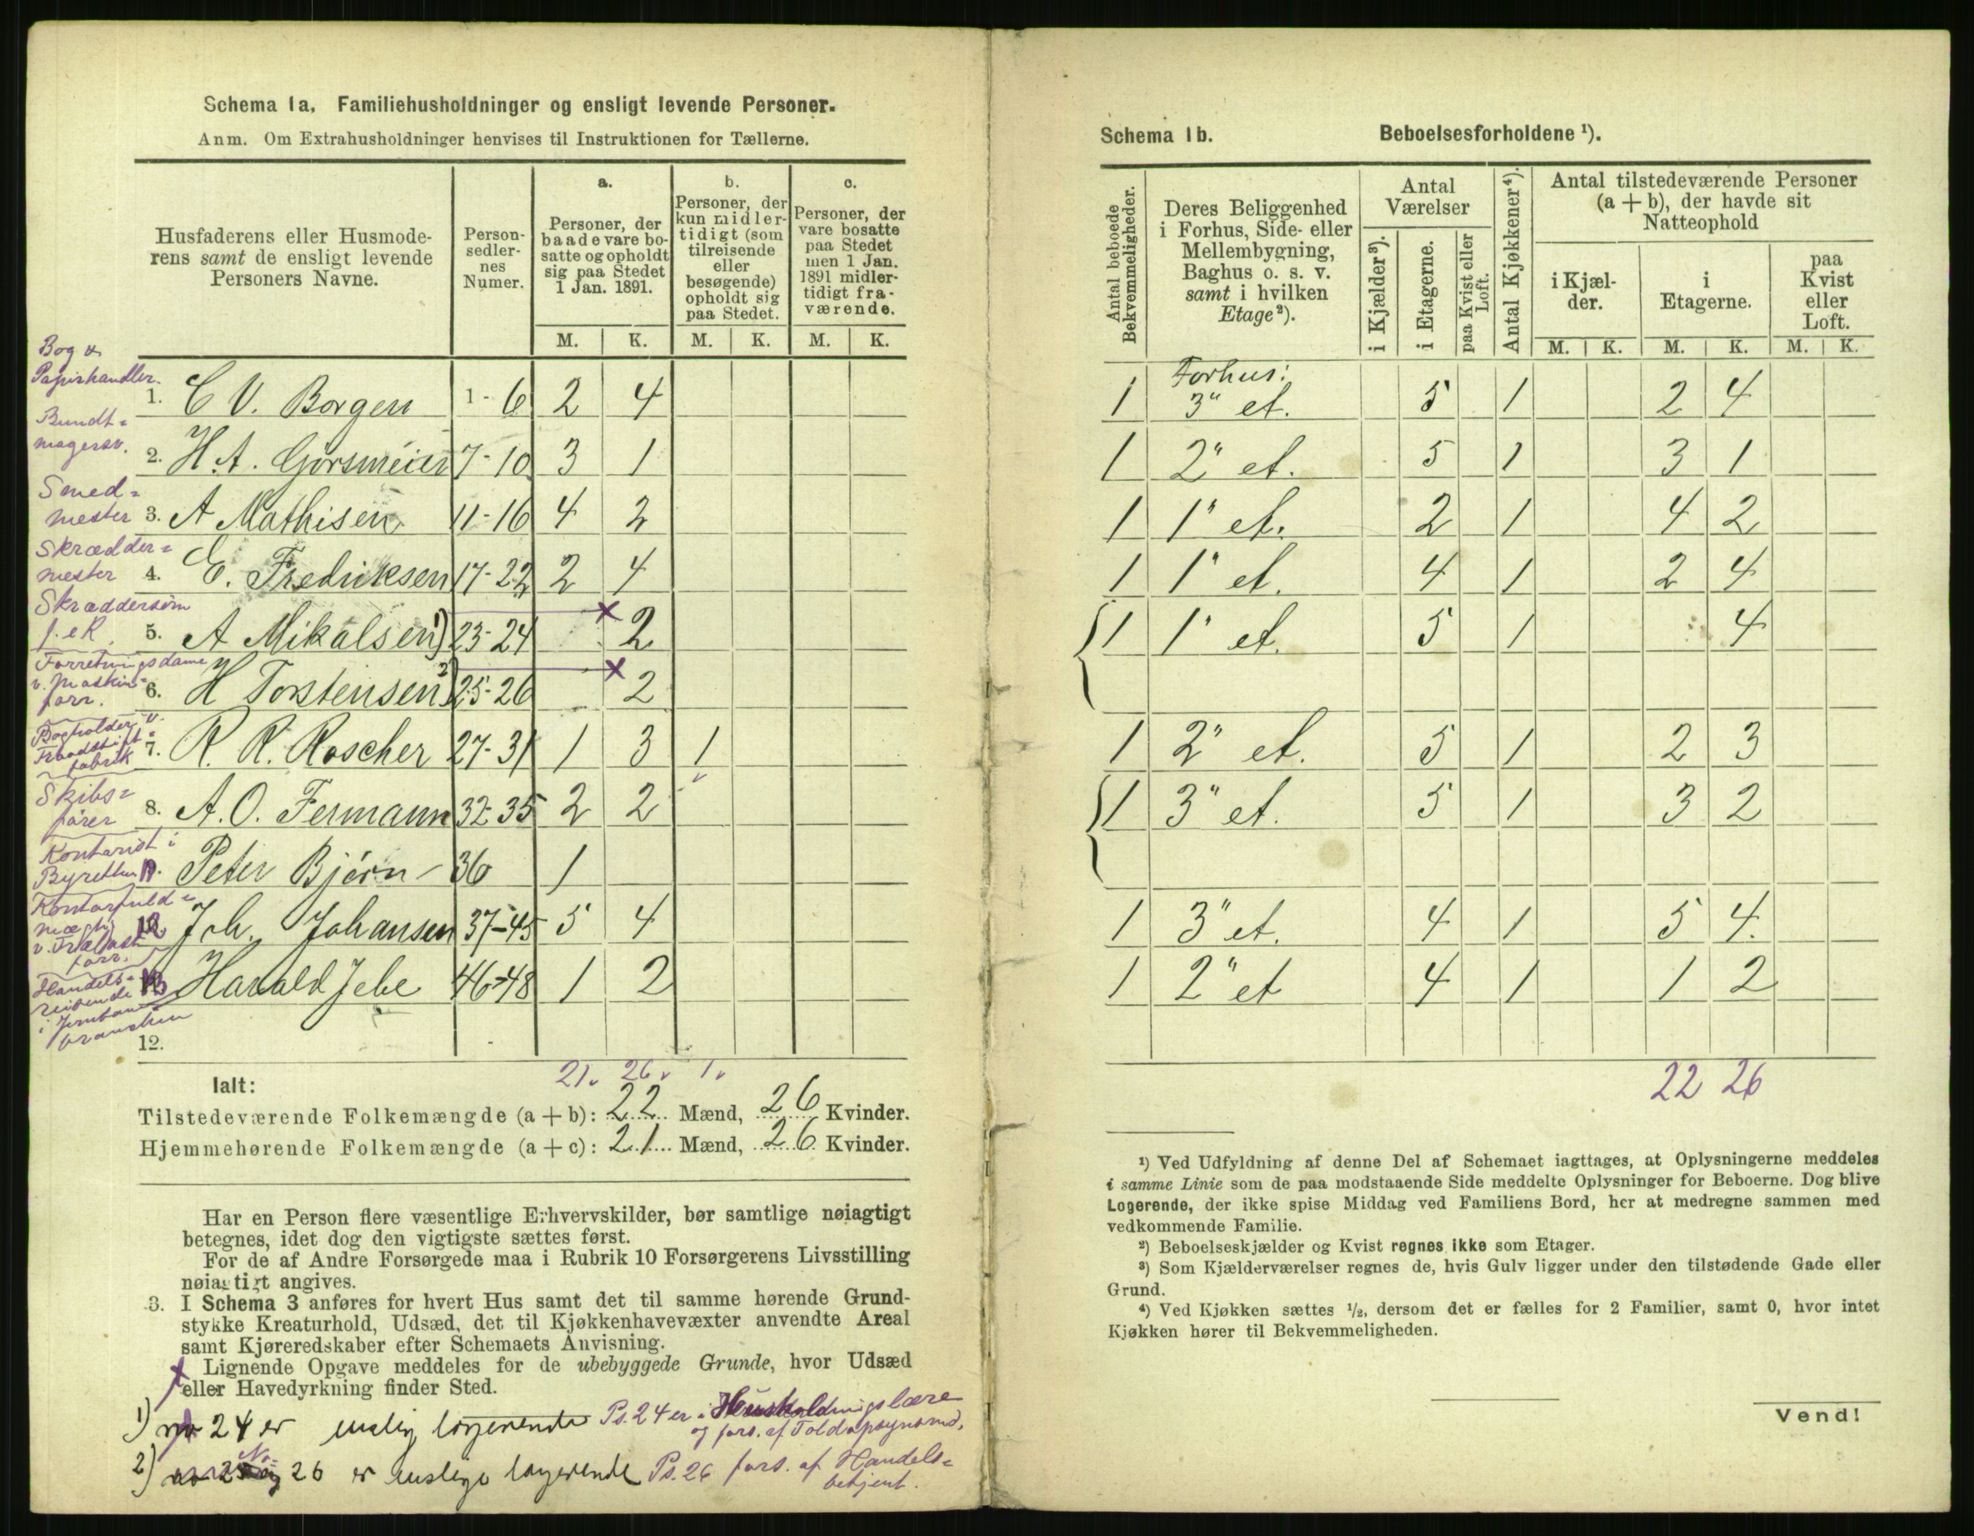 Schema 1a. Familiehusholdninger og ensligt levende Personer.
Anm. Om Extrahusholdninger henvises til Instruktionen for Tællerne.
Husfaderens eller Husmode-
rens samt de ensligt levende
Personers Navne.
Person-
sedler-
nes
Numer.
a.
Personer, der
baade vare bo-
satte og opholdt
sig paa Stedet
1 Jan. 1891.
b.
Personer, der
kun midler-
tidigt (som
tilreisende
eller
besøgende)
opholdt sig
paa Stedet.
c.
Personer, der
vare bosatte
paa Stedet
men 1 Jan.
1891 midler-
tidigt fra-
værende.
M. K. M. K. M. K.
Bog &
Papirhandler.
1. C V. Borgen 1-6 2 4
Bundt=
magersv.
2. H. A. Görsmeier 7-10 3 1
Smed=
mester
3. A Mathisen 11-16 4 2
Skrædder=
mester
4. E. Fredriksen 17-22 2 4
Skræddersøm
f. eR.
5. A Mikalsen 1) 23-24 x 2
Forretningsdame
v. Maskin=
forr.
6. H Torstensen 2) 25-26 x 2
Bogholder v.
fabrik
7. R. R. Roscher 27-31 1 3 1
Skibs=
fører
8. A. O. Fermann 32-35 2 2
Kontorist i
Byretten
Peter Bjørn - 36 1
Kontorfuld=
mægtig
v. Trælast
forr.
Joh. Johansen 37-45 5 4
Handels=
reisende
i Jernbane
branchen
Harald Jebe 46-48 1 2
12.
21. 26. 1.
Ialt:
Tilstedeværende Folkemængde (a + b): 22 Mænd, 26 Kvinder.
Hjemmehørende Folkemængde (a + c): 21 Mænd, 26 Kvinder.
Har en Person flere væsentlige Erhvervskilder, bør samtlige nøiagtigt
betegnes, idet dog den vigtigste sættes først.
For de af Andre Forsørgede maa i Rubrik 10 Forsørgerens Livsstilling
nøiagtigt angives.
3. I Schema 3 anføres for hvert Hus samt det til samme hørende Grund-
stykke Kreaturhold, Udsæd, det til Kjøkkenhavevæxter anvendte Areal
samt Kjøreredskaber efter Schemaets Anvisning.
Lignende Opgave meddeles for de ubebyggede Grunde, hvor Udsæd
eller Havedyrkning finder Sted.
1) 24 er enslig logerende Ps. 24 er i Husholdningslære
og fors. af Toldopsynsmd,
2) No 26 er enslige logerende Ps. 26 fors. af Handels=
betjent.
Schema 1b. Beboelsesforholdene ¹).
Antal beboede
Bekvemmeligheder.
Deres Beliggenhed
i Forhus, Side- eller
Mellembygning,
Baghus o. s. v.
samt i hvilken
Etage ²).
Antal
Værelser
i Kjælder ³).
i Etagerne.
paa Kvist eller
Loft.
Antal Kjøkkener ⁴).
Antal tilstedeværende Personer
(a + b), der havde sit
Natteophold
i Kjæl-
der.
i
Etagerne.
paa
Kvist
eller
Loft.
M. K. M. K. M. K.
Forhus:
1 3" et. 5 1 2 4
1 2" et. 5 1 3 1
1 1" et. 2 1 4 2
1 1" et. 4 1 2 4
1 1" et. 5 1 4
1 2" et. 5 1 2 3
1 3" et. 5 1 3 2
1 3" et. 4 1 5 4.
1 2" et 4 1 1 2
22 26
¹) Ved Udfyldning af denne Del af Schemaet iagttages, at Oplysningerne meddeles
i samme Linie som de paa modstaaende Side meddelte Oplysninger for Beboerne. Dog blive
Logerende, der ikke spise Middag ved Familiens Bord, her at medregne sammen med
vedkommende Familie.
²) Beboelseskjælder og Kvist regnes ikke som Etager.
³) Som Kjælderværelser regnes de, hvis Gulv ligger under den tilstødende Gade eller
Grund.
⁴) Ved Kjøkken sættes ½, dersom det er fælles for 2 Familier, samt 0, hvor intet
Kjøkken hører til Bekvemmeligheden.
Vend!